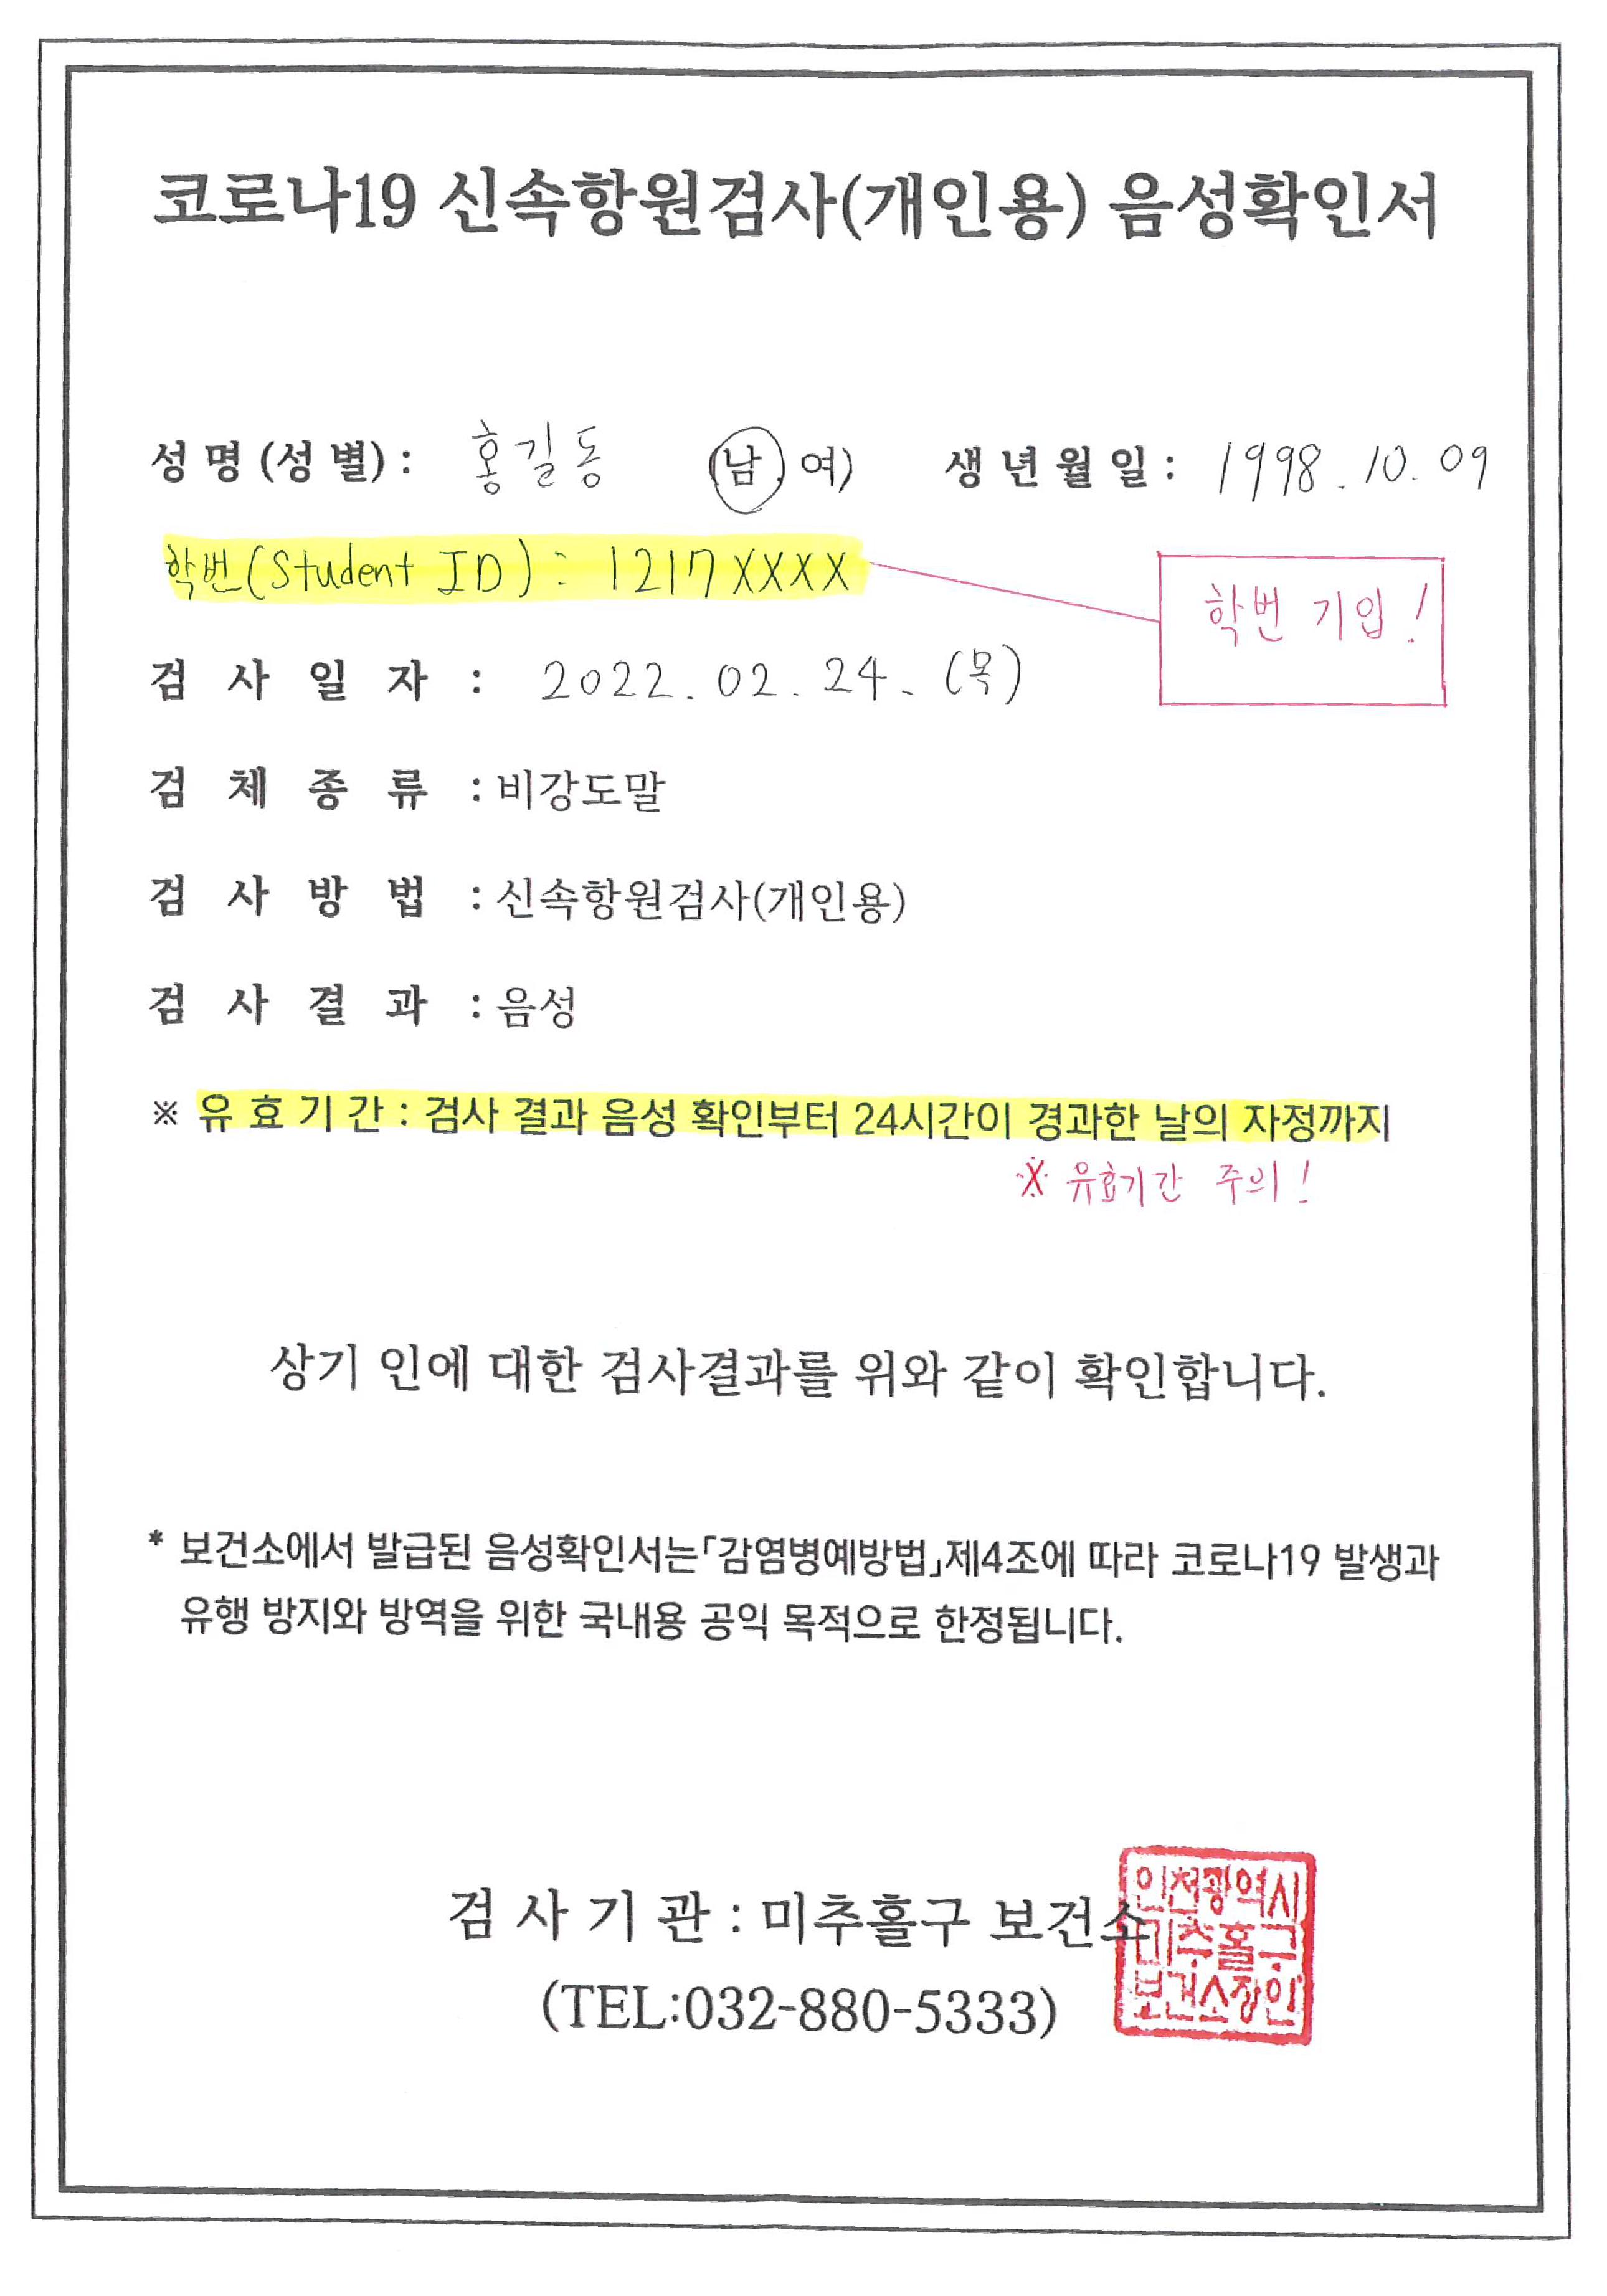 코로나19 신속항원검사(개인용) 음성확인서
성 명 (성 별) : 홍길동 (남, 여) 생 년 월 일 : 1998. 10. 09
학번(Student ID) : 1217XXXX
학번 기입!
검 사 일 자 : 2022. 02. 24. (목)
검 체 종 류 : 비강도말
검 사 방 법 : 신속항원검사(개인용)
검 사 결 과 : 음성
※ 유 효 기 간 : 검사 결과 음성 확인부터 24시간이 경과한 날의 자정까지
※ 유효기간 주의!
상기 인에 대한 검사결과를 위와 같이 확인합니다.
* 보건소에서 발급된 음성확인서는「감염병예방법」제4조에 따라 코로나19 발생과
유행 방지와 방역을 위한 국내용 공익 목적으로 한정됩니다.
검 사 기 관 : 미추홀구 보건소
(TEL:032-880-5333)
인천광역시
미추홀구
보건소장인